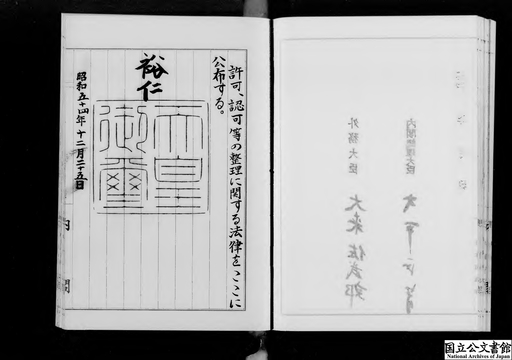 許可、認可等の整理に関する法律をここに
公布する。
裕仁
天皇
御璽
昭和五十四年十二月二十五日
内閣
内閣総理大臣
外務大臣 大来佐武郎
国立公文書館
National Archives of Japan